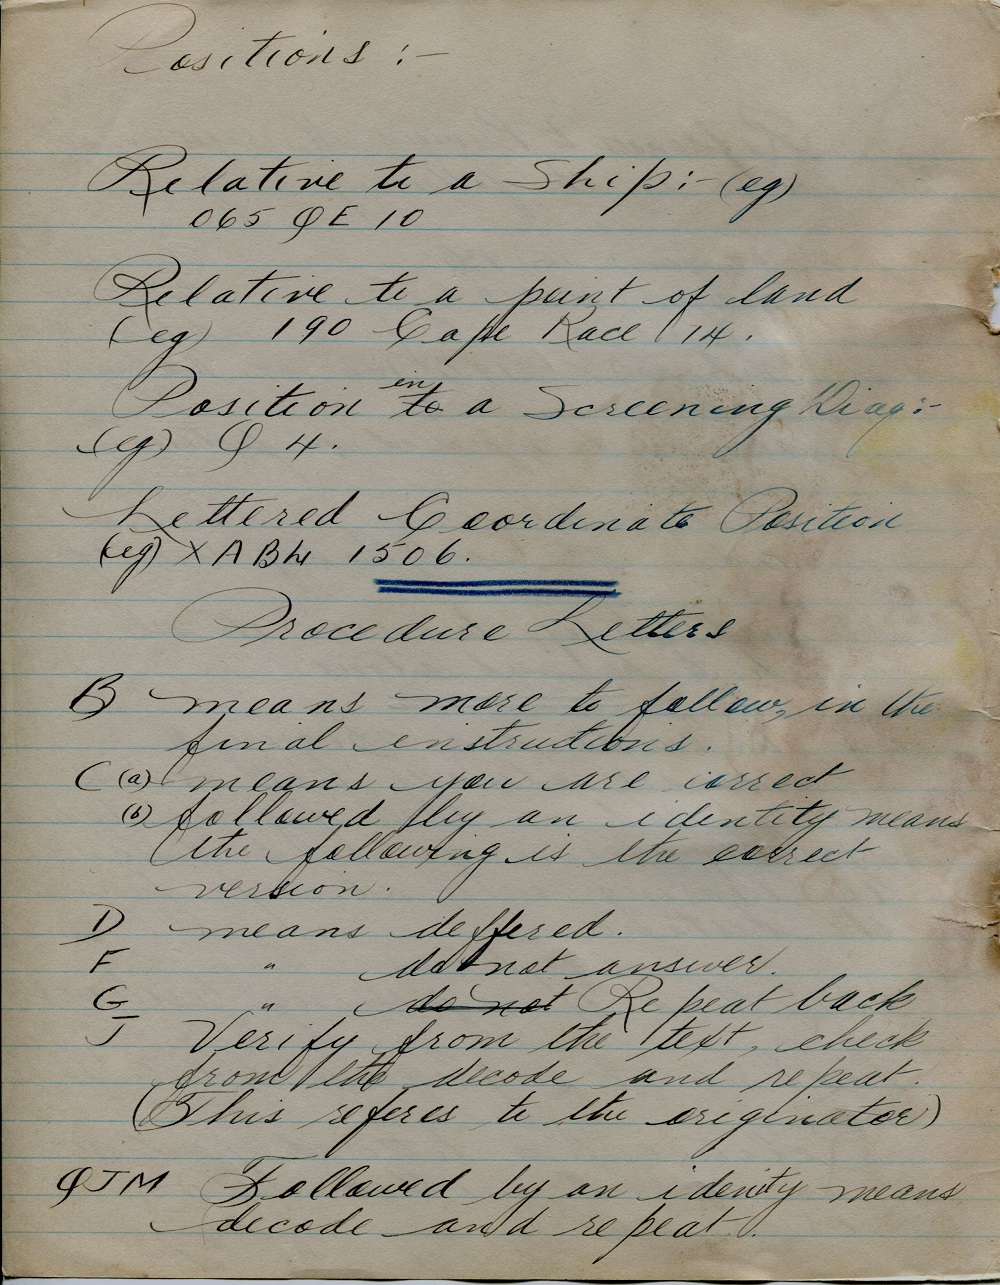 Positions :-
Relative to a Ship:- (eg)
065 QE 10
Relative to a point of land
(eg) 190 Cape Race 14.
in
Position to a Screening Diag:-
(eg) Q 4.
Lettered Coordinate Position
(eg) XABH 1506.
Procedure Letters
B means more to follow, in the
final instructions.
C (a) means you are correct
(b) followed by an identity means
the following is the correct
version.
D means deffered.
F " do not answer.
G " do not Repeat back
J Verify from the text, check
from the decode and repeat.
(This referes to the originator)
QJM Followed by an idenity means
decode and repeat.